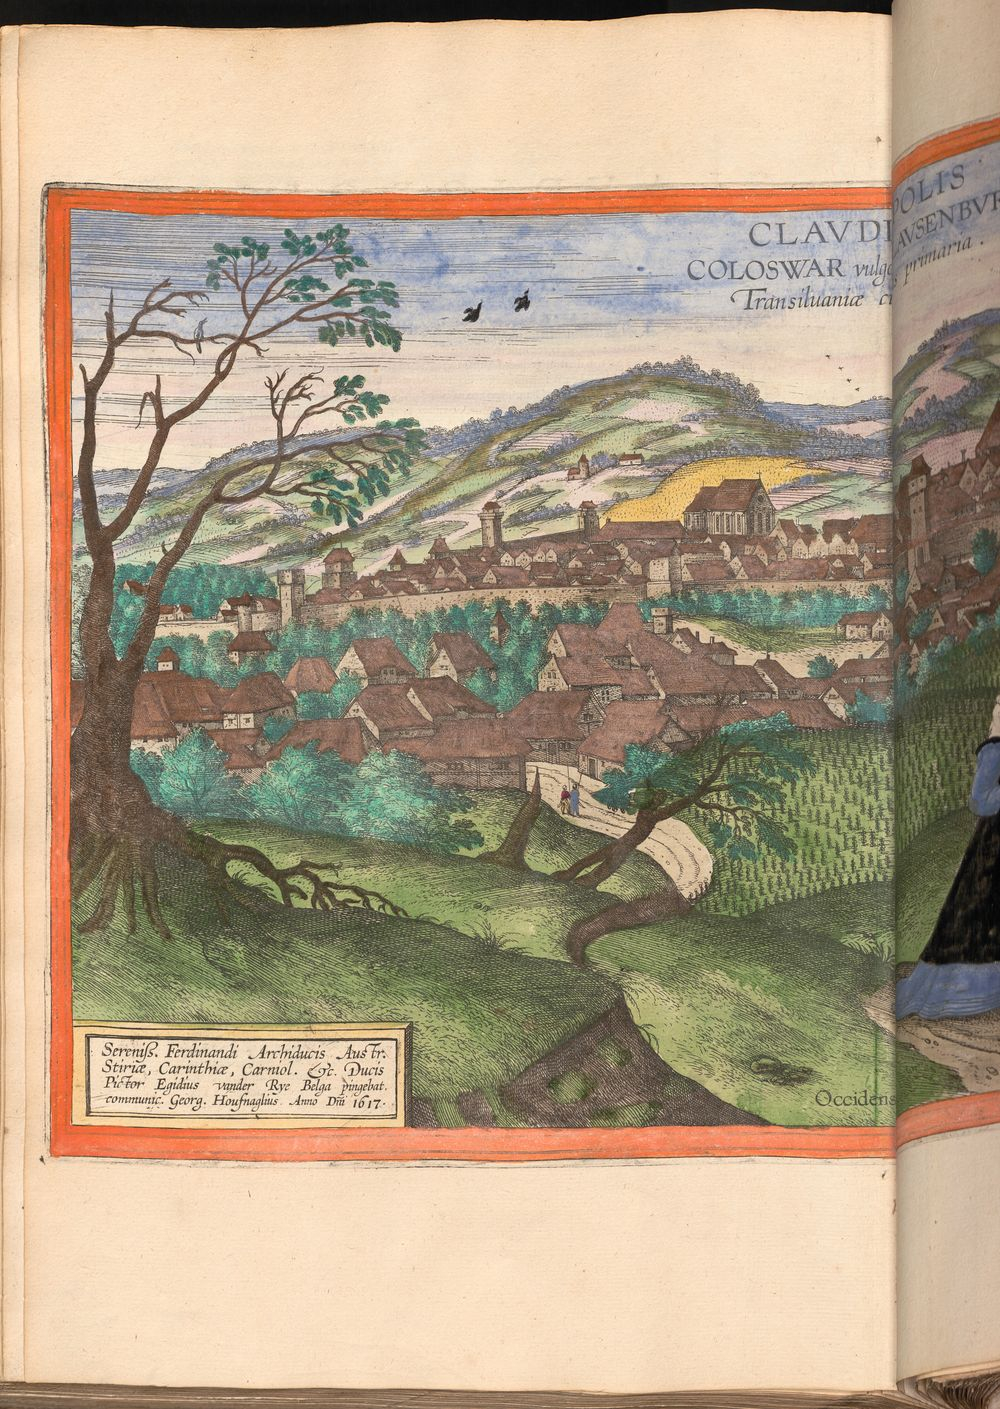 CLAVDI POLIS
COLOSWAR vulgo AVSENBVR
Transiluaniæ ci s primaria .
Sereniſs. Ferdinandi Archiducis Austr.
Stiriæ, Carinthiæ, Carniol. &c. Ducis
Pictor Egidius vander Rye Belga pingebat.
communic. Georg. Houfnaglius Anno Dñi 1617.
Occidens